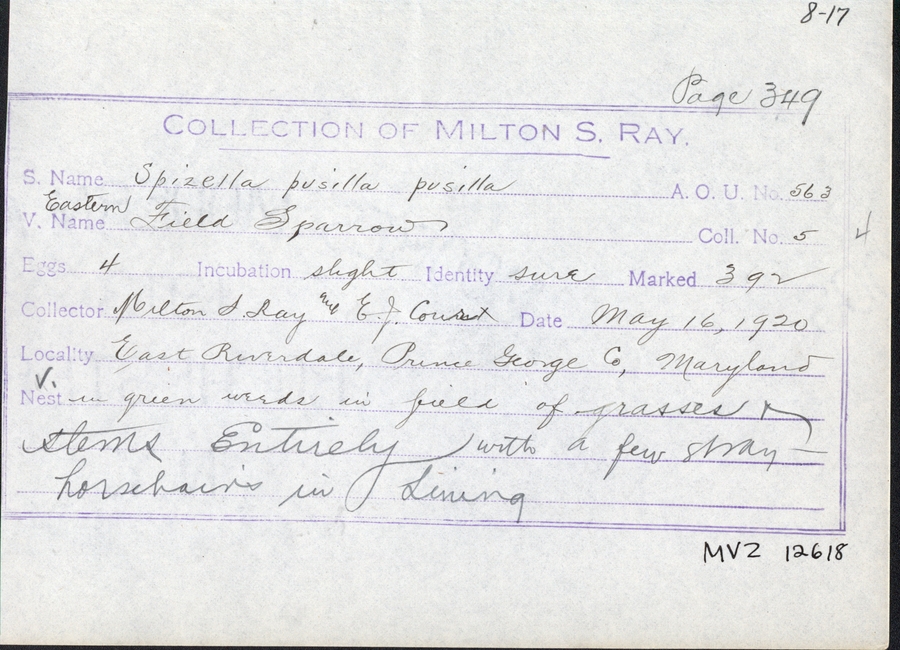 8-17
Page 349
COLLECTION OF MILTON S. RAY.
S. Name Spizella pusilla pusilla A. O. U. No. 563
Eastern
V. Name Field Sparrow Coll. No. 5
4
Eggs 4 Incubation slight Identity sure Marked 392
Collector Milton S. Ray and E. J. Court Date May 16, 1920
Locality East Riverdale, Prince George Co, Maryland
V.
Nest in green weeds in field of grasses &
stems Entirely with a few stray
horsehairs in Lining
MVZ 12618